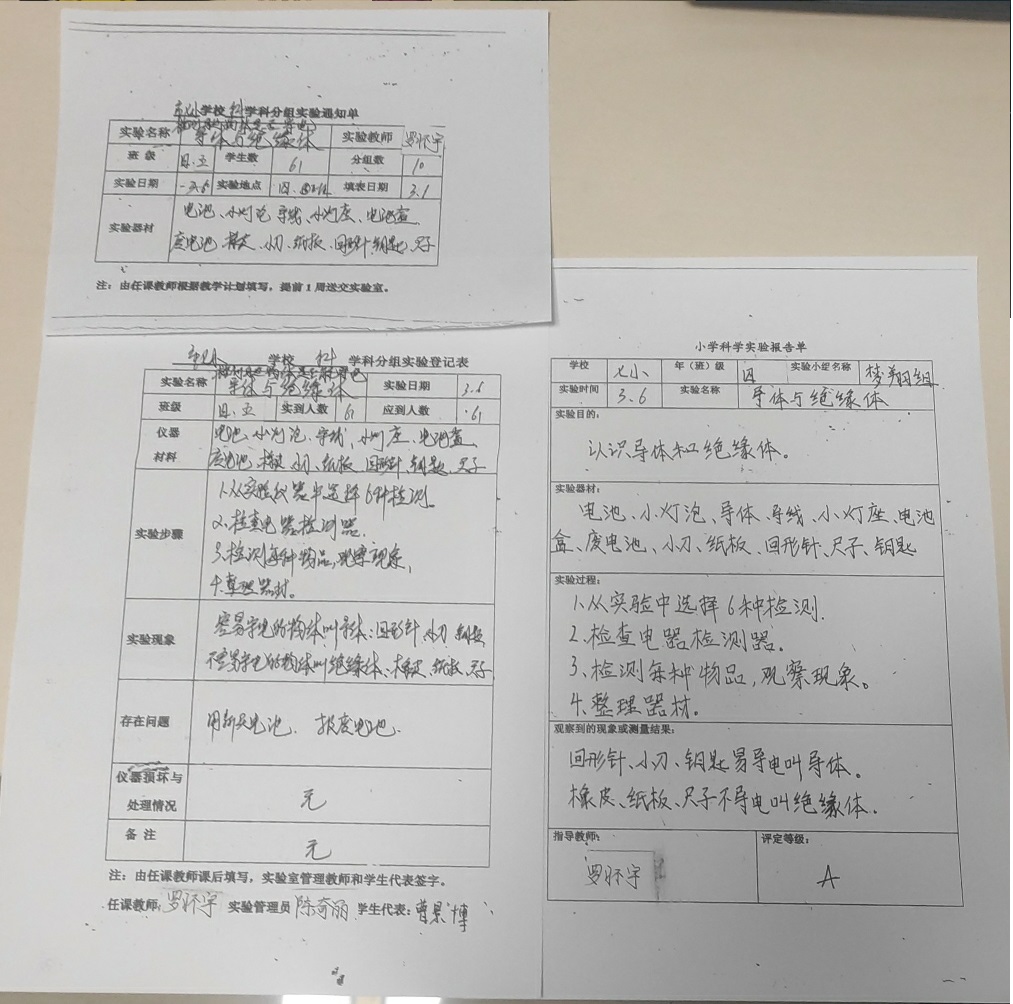 学校 科 学科分组实验通知单
实验名称 导体与绝缘体 实验教师 罗怀宇
班级 四.五 学生数 61 分组数 10
实验日期 3.6 实验地点 填表日期 3.1
实验器材 电池、小灯泡 导线、小灯座、电池盒
废电池、橡皮、小刀、纸板、回形针、钥匙、尺子
注：由任课教师根据教学计划填写，提前1周送交实验室。
学校 科 学科分组实验登记表
实验名称 导体与绝缘体 实验日期 3.6
班级 四.五 实到人数 61 应到人数 61
仪器 电池、小灯泡、导线、小灯座、电池盒
材料 废电池、橡皮、小刀、纸板、回形针、钥匙、尺子
实验步骤
1.从实验仪器中选择6种检测。
2.检查电器检测器.
3.检测每种物品,观察现象,
4.整理器材.
实验现象
容易导电的物体叫导体:回形针 小刀 钥匙
不容易导电的物体叫绝缘体、橡皮、纸板、尺子
存在问题 电池、 废电池.
仪器损坏与
处理情况 无
备注 无
注：由任课教师课后填写，实验室管理教师和学生代表签字。
任课教师: 罗怀宇 实验管理员 陈奇丽 学生代表: 曾景博
小学科学实验报告单
学校 七小 年（班）级 四 实验小组名称 梦翔组
实验时间 3.6 实验名称 导体与绝缘体
实验目的:
认识导体和绝缘体。
实验器材:
电池、小灯泡、导体、导线、小灯座、电池
盒、废电池、小刀、纸板、回形针、尺子、钥匙
实验过程:
1.从实验中选择6种检测.
2.检查电器检测器.
3.检测每种物品,观察现象。
4.整理器材.
观察到的现象或测量结果:
回形针、小刀、钥匙易导电叫导体。
橡皮、纸板、尺子不导电叫绝缘体.
指导教师: 评定等级:
罗怀宇 A